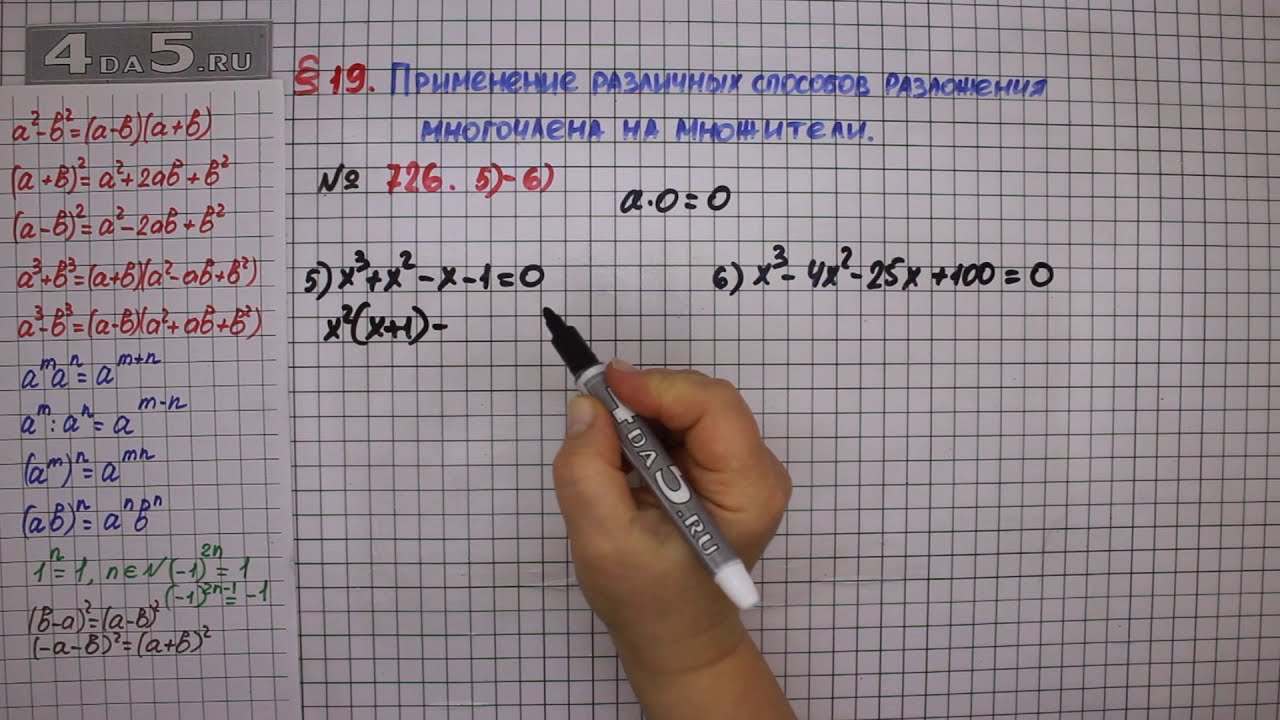 4DA5.RU
a²-b²=(a-b)(a+b)
(a+b)²=a²+2ab+b²
(a-b)²=a²-2ab+b²
a³+b³=(a+b)(a²-ab+b²)
a³-b³=(a-b)(a²+ab+b²)
aᵐaⁿ=aᵐ⁺ⁿ
aᵐ:aⁿ=aᵐ⁻ⁿ
(aᵐ)ⁿ=aᵐⁿ
(ab)ⁿ=aⁿbⁿ
1ⁿ=1, n∈N (-1)²ⁿ=1
(-1)²ⁿ⁻¹=-1
(b-a)²=(a-b)²
(-a-b)²=(a+b)²
§19. Применение различных способов разложения
многочлена на множители.
№ 726. 5)-6)
a·0=0
5) x³+x²-x-1=0
x²(x+1)-
6) x³-4x²-25x+100=0
4DA5.RU